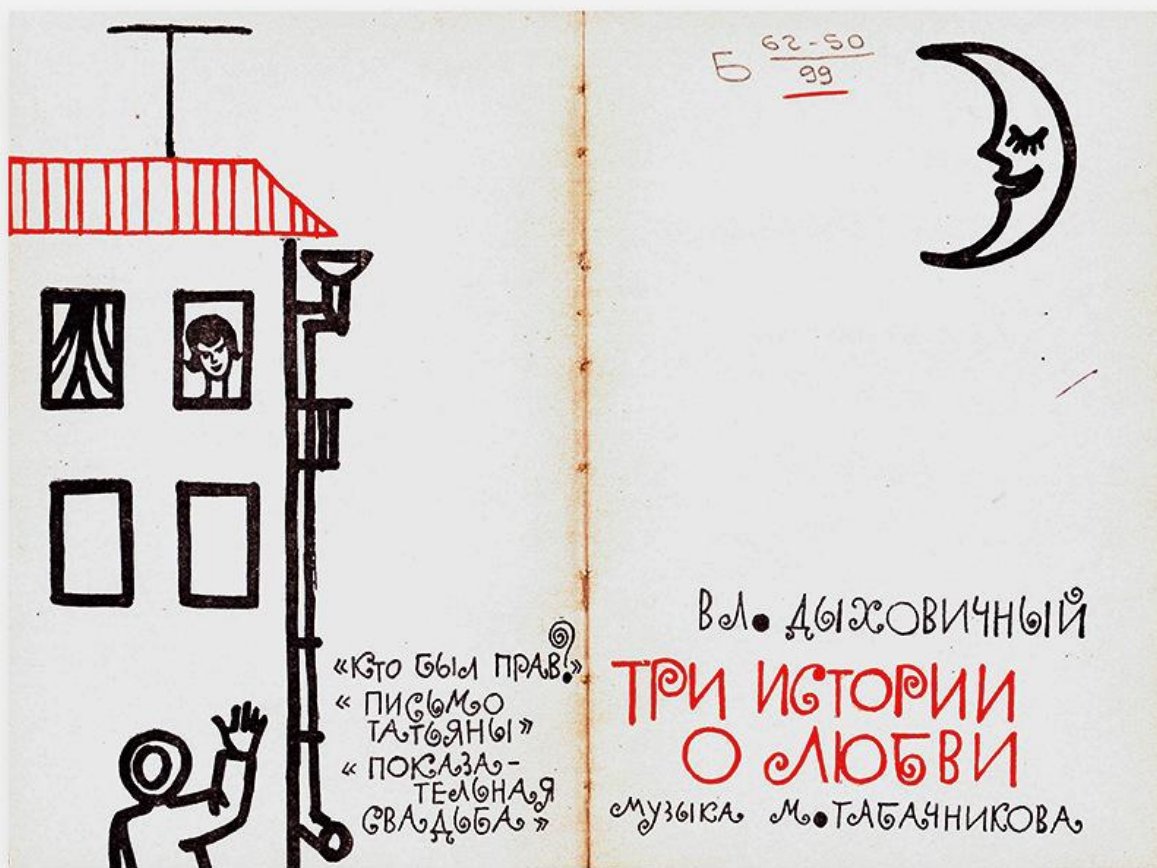 «Кто был прав?»
«ПИСЬМО
ТАТЬЯНЫ»
«ПОКАЗА-
ТЕЛЬНАЯ
СВАДЬБА»
Б 62-50
99
ВЛ. ДЫХОВИЧНЫЙ
ТРИ ИСТОРИИ
О ЛЮБВИ
МУЗЫКА М. ТАБАЧНИКОВА